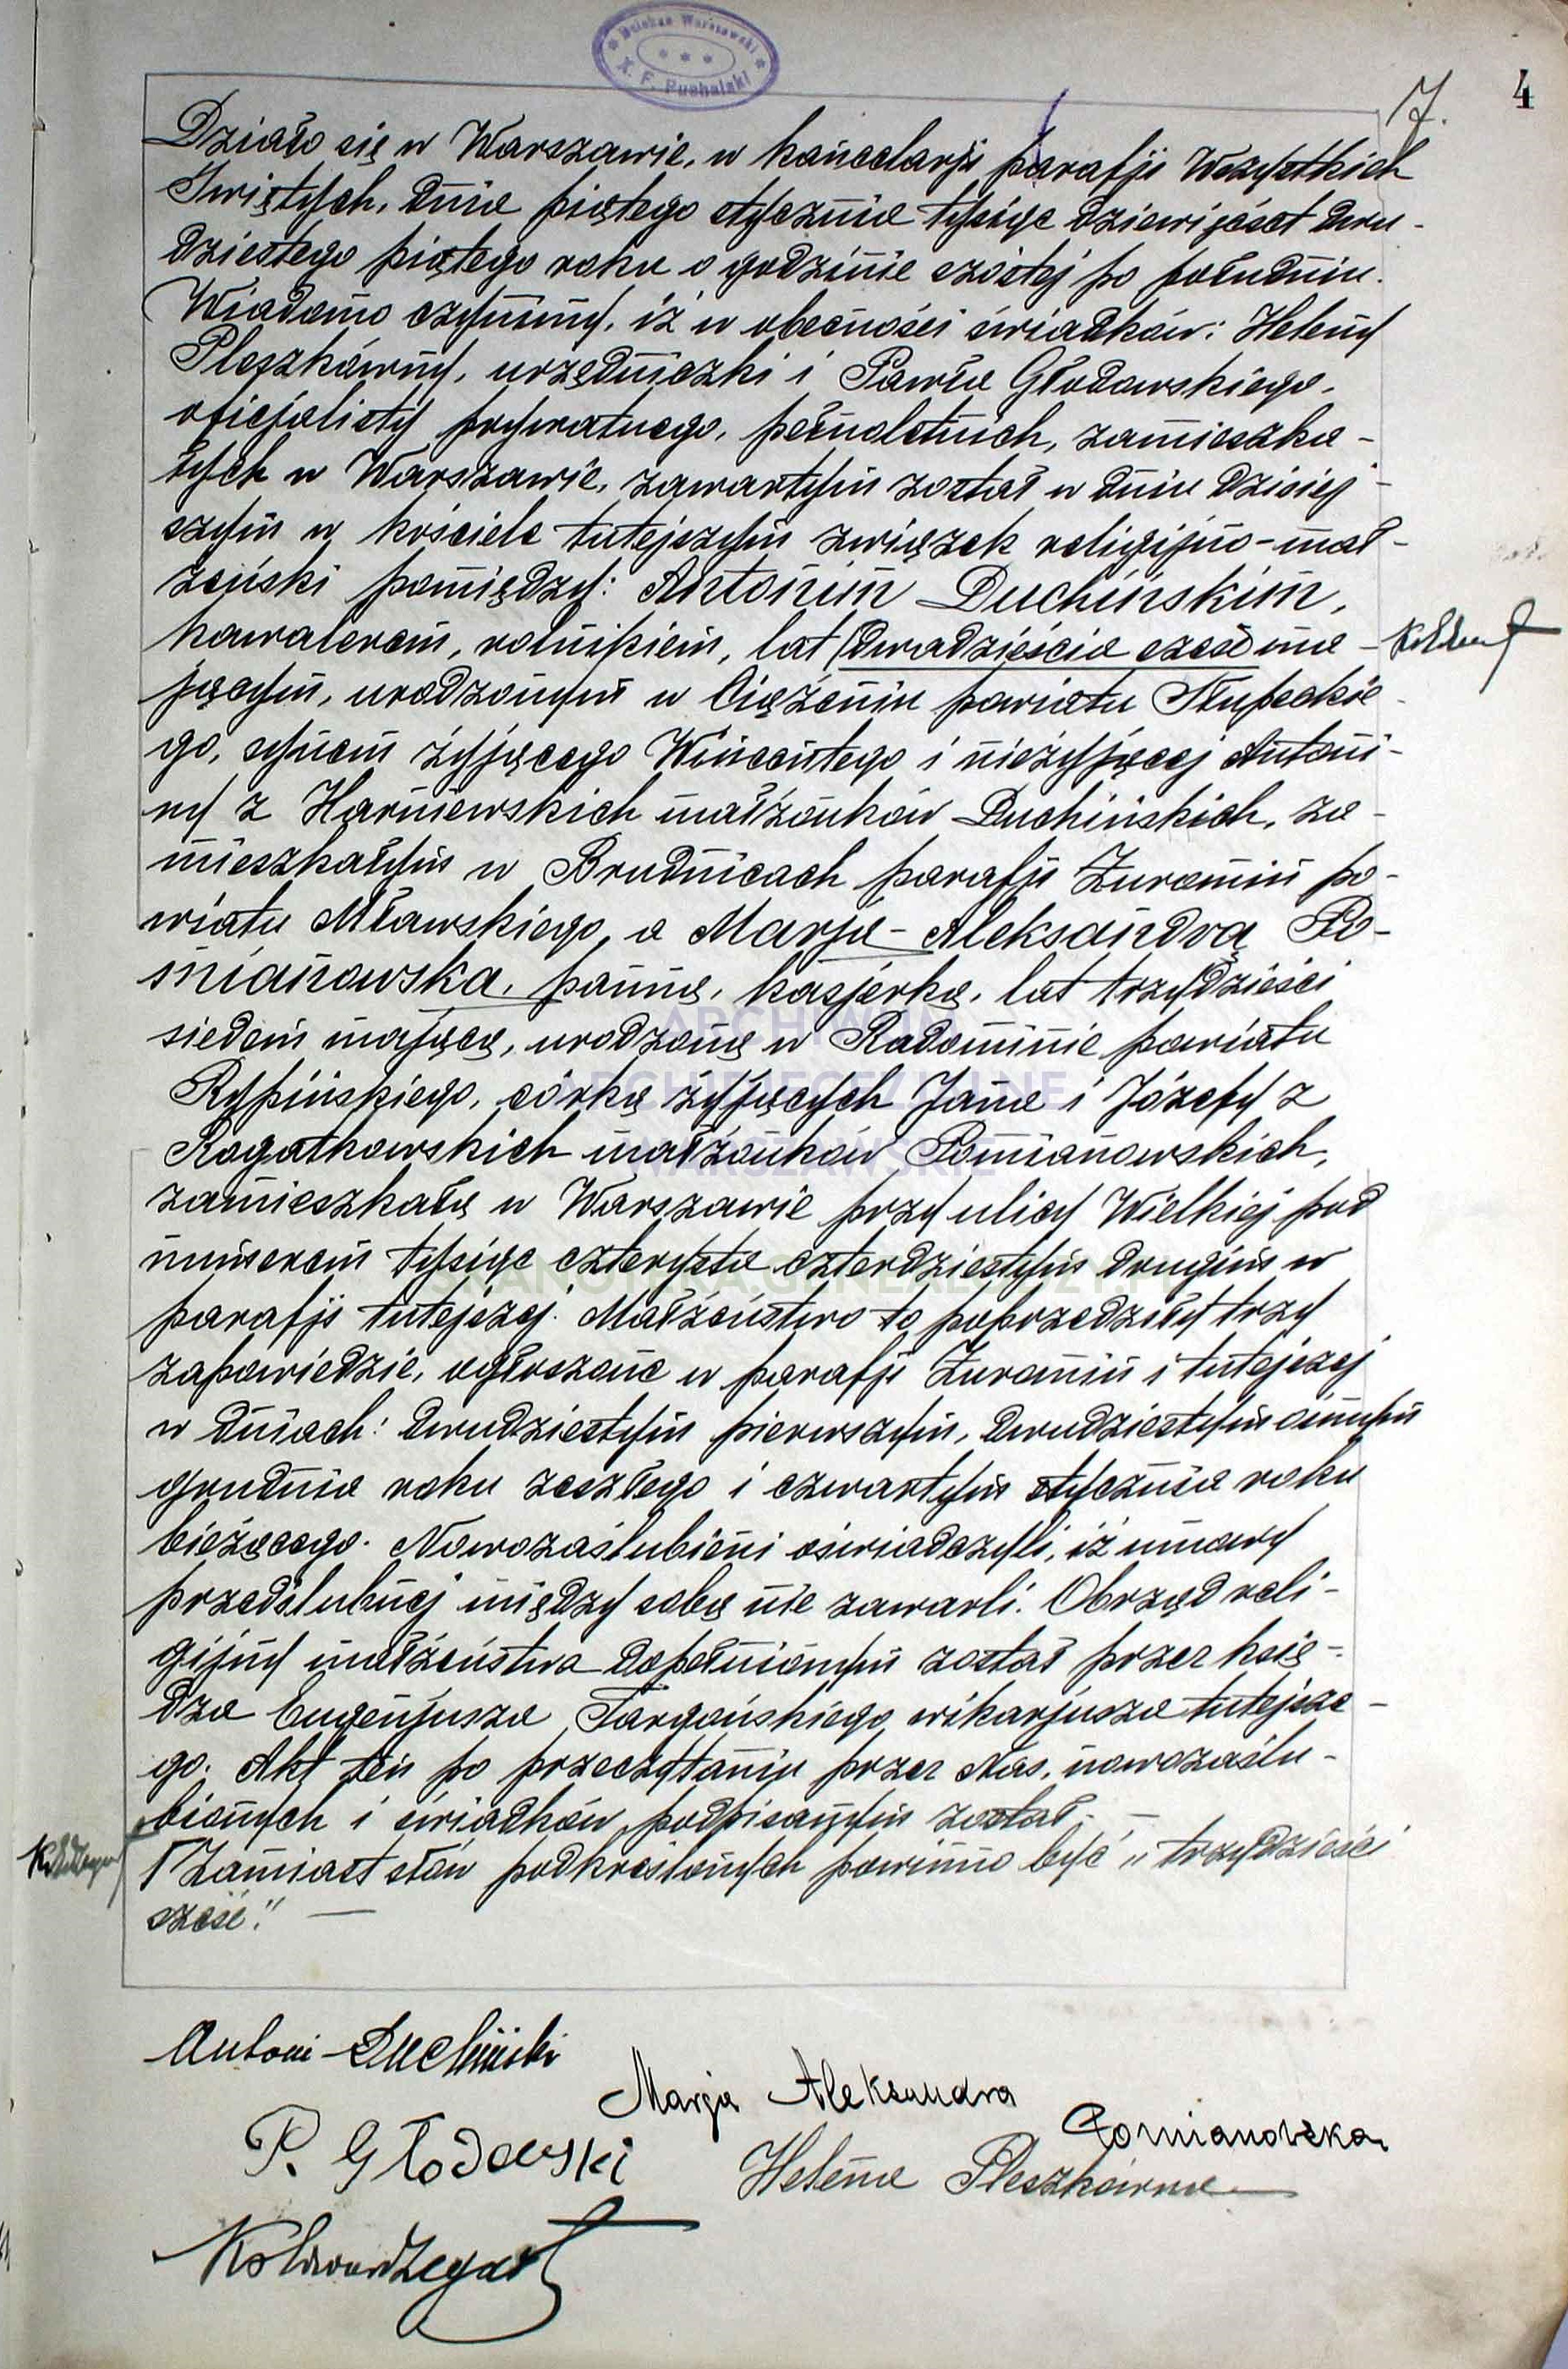 Dziekan Warszawski
X. F. Puchalski
7.
4
Działo się w Warszawie, w kancelarji parafji Wszystkich
Świętych, dnia piątego stycznia tysiąc dziewięćset dwu-
dziestego piątego roku o godzinie szóstej po południu.
Wiadomo czynimy, iż w obecności świadków: Heleny
Pleszkówny, urzędniczki i Pawła Głodowskiego,
oficjalisty prywatnego, pełnoletnich, zamieszka-
łych w Warszawie, zawartym został w dniu dzisiej-
szym w kościele tutejszym związek religijno-mał-
żeński pomiędzy: Antonim Duchińskim,
kawalerem, rolnikiem, lat (dwadzieścia sześć ma-
jącym, urodzonym w Ciążeniu powiatu Słupeckie-
go, synem żyjącego Wincentego i nieżyjącej Antoni-
ny z Harniewskich małżonków Duchińskich, za-
mieszkałym w Brudnicach parafji Żuromin po-
wiatu Mławskiego, a Marją-Aleksandrą Po-
mianowską, panną, kasjerką, lat trzydzieści
siedem mającą, urodzoną w Radominie powiatu
Rypińskiego, córką żyjących Jana i Józefy z
Rogatkowskich małżonków Pomianowskich,
zamieszkałą w Warszawie przy ulicy Wielkiej pod
numerem tysiąc czterysta czterdziestym drugim w
parafji tutejszej. Małżeństwo to poprzedziły trzy
zapowiedzie, ogłoszone w parafji Żuromin i tutejszej
w dniach: dwudziestym pierwszym, dwudziestym ósmym
grudnia roku zeszłego i czwartym stycznia roku
bieżącego. Nowozaślubieni oświadczyli, iż umowy
przedślubnej między sobą nie zawarli. Obrzęd reli-
gijny małżeństwa dopełnionym został przez księ-
dza Eugenjusza Targońskiego wikarjusza tutejsze-
go. Akt ten po przeczytaniu przez Nas, nowozaślu-
bionych i świadków podpisanym został. —
Zamiast słów podkreślonych powinno być „trzydzieści
sześć." —
Antoni Duchiński
Marja Aleksandra
Pomianowska
P. Głodowski
Helena Pleszkówna
ARCHIWUM
ARCHIDIECEZJALNE
WARSZAWSKIE